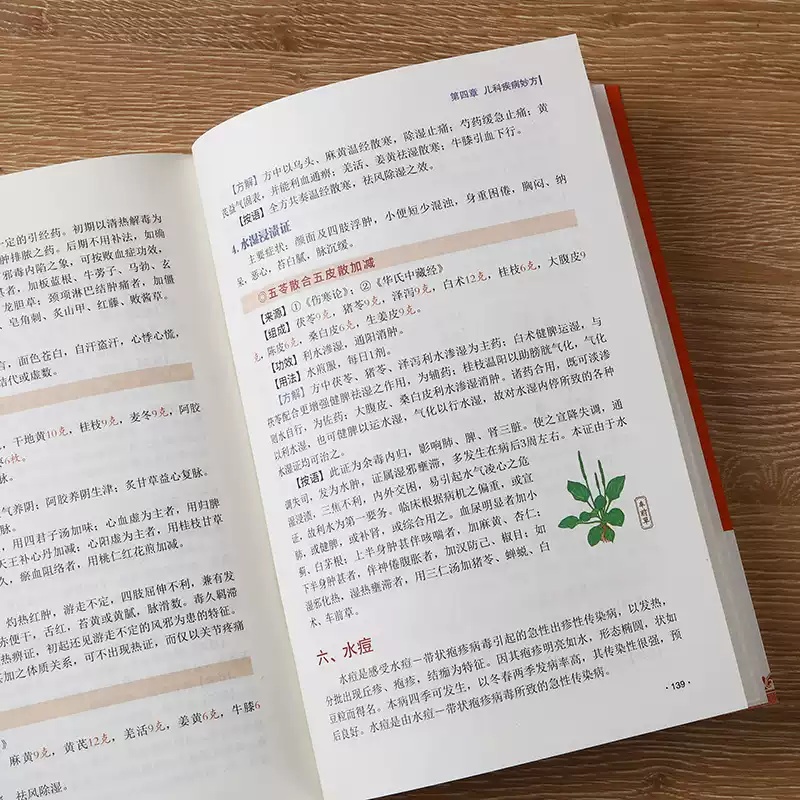 一定的引经药。初期以清热解毒为
肿排脓之药。后期不用补法，如确
邪毒内陷之象，可按败血症功效，
甚者，加板蓝根、牛蒡子、马勃、玄
龙胆草；颈项淋巴结肿痛者，加僵
、皂角刺、炙山甲、红藤、败酱草。
言，面色苍白，自汗盗汗，心悸心慌，
结代或虚数。
，干地黄10克，桂枝9克，麦冬9克，阿胶
6枚。
脉。
气养阴；阿胶养阴生津；炙甘草益心复脉。
脉。
，用四君子汤加味；心血虚为主者，用归脾
天王补心丹加减；心阳虚为主者，用桂枝甘草
久，瘀血阻络者，用桃仁红花煎加减。
灼热红肿，游走不定，四肢屈伸不利，兼有发
赤便干，舌红，苔黄或黄腻，脉滑数。毒久羁滞
热痹证，初起还见游走不定的风邪为患的特征。
其加之体质关系，可不出现热证，而仅以关节疼痛
》
麻黄9克，黄芪12克，羌活9克，姜黄6克，牛膝6
。
，祛风除湿。
第四章 儿科疾病妙方
【方解】方中以乌头、麻黄温经散寒，除湿止痛；芍药缓急止痛；黄
芪益气固表，并能利血通痹；羌活、姜黄祛湿散寒；牛膝引血下行。
【按语】全方共奏温经散寒，祛风除湿之效。
4.水湿浸渍证
主要症状：颜面及四肢浮肿，小便短少混浊，身重困倦，胸闷、纳
呆，恶心，苔白腻，脉沉缓。
◎五苓散合五皮散加减
【来源】①《伤寒论》；②《华氏中藏经》
【组成】茯苓9克，猪苓9克，泽泻9克，白术12克，桂枝6克，大腹皮9
克，陈皮6克，桑白皮6克，生姜皮9克。
【功效】利水渗湿，通阳消肿。
【用法】水煎服，每日1剂。
【方解】方中茯苓、猪苓、泽泻利水渗湿为主药；白术健脾运湿，与
茯苓配合更增强健脾祛湿之作用，为辅药；桂枝温阳以助膀胱气化，气化
则水自行，为佐药；大腹皮、桑白皮利水渗湿消肿。诸药合用，既可淡渗
以利水湿，也可健脾以运水湿，气化以行水湿，故对水湿内停所致的各种
水湿证均可治之。
【按语】此证为余毒内归，影响肺、脾、肾三脏。使之宣降失调，通
调失司，发为水肿，证属湿邪壅滞，多发生在病后3周左右。本证由于水
湿浸渍，三焦不利，内外交困，易引起水气凌心之危
证，故利水为第一要务。临床根据病机之偏重，或宣
肺，或健脾，或补肾，或综合用之。血尿明显者加小
蓟、白茅根；上半身肿甚伴咳喘者，加麻黄、杏仁；
下半身肿甚者，伴神倦腹胀者，加汉防己、椒目；如
湿邪化热，湿热壅滞者，用三仁汤加猪苓、蝉蜕、白
术、车前草。
车前草
六、水痘
水痘是感受水痘－带状疱疹病毒引起的急性出疹性传染病，以发热，
分批出现丘疹、疱疹，结痂为特征。因其疱疹明亮如水，形态椭圆，状如
豆粒而得名。本病四季可发生，以冬春两季发病率高，其传染性很强，预
后良好。水痘是由水痘－带状疱疹病毒所致的急性传染病。
·139·